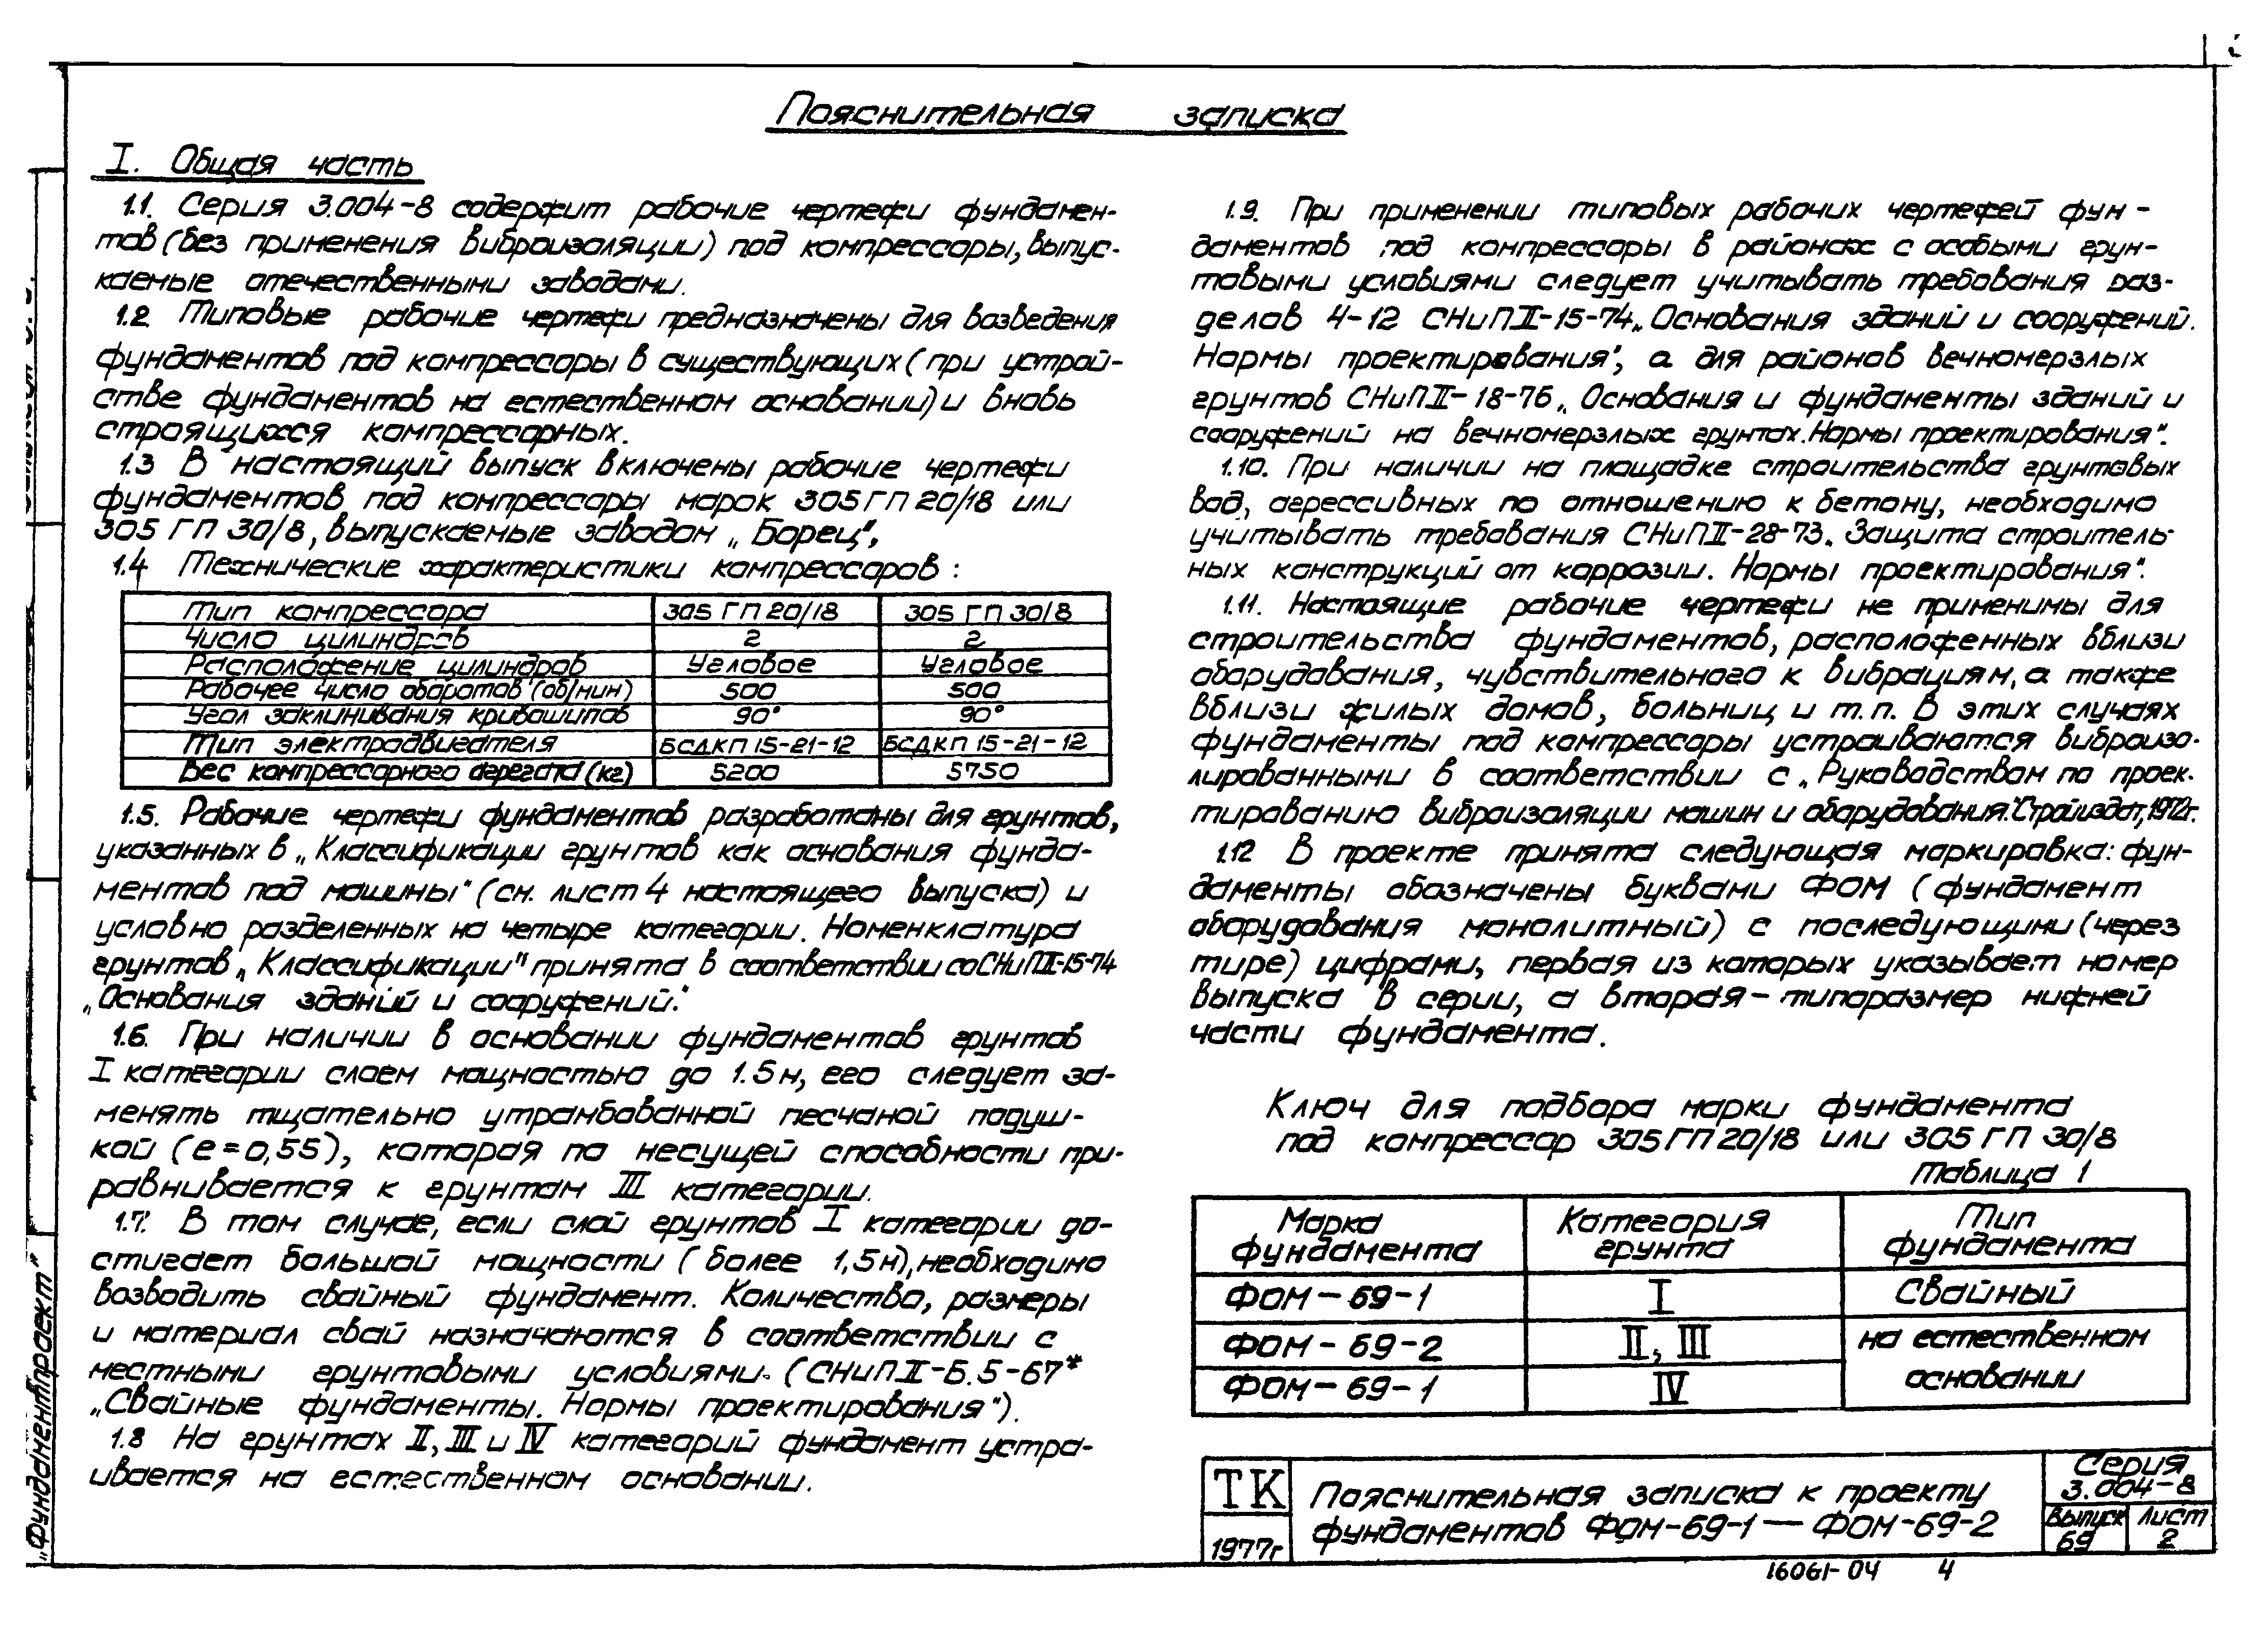 Пояснительная записка
I. Общая часть
1.1. Серия 3.004-8 содержит рабочие чертежи фундамен-
тов (без применения виброизоляции) под компрессоры, выпус-
каемые отечественными заводами.
1.2 Типовые рабочие чертежи предназначены для возведения
фундаментов под компрессоры в существующих (при устрой-
стве фундаментов на естественном основании) и вновь
строящихся компрессорных.
1.3 В настоящий выпуск включены рабочие чертежи
фундаментов под компрессоры марок 305 ГП 20/18 или
305 ГП 30/8, выпускаемые заводом „Борец",
1.4 Технические характеристики компрессоров :
Тип компрессора 305 ГП 20/18 305 ГП 30/8
Число цилиндров 2 2
Расположение цилиндров Угловое Угловое
Рабочее число оборотов (об/мин) 500 500
Угол заклинивания кривошипов 90° 90°
Тип электродвигателя БСДКП 15-21-12 БСДКП 15-21-12
Вес компрессорного агрегата (кг) 5200 5750
1.5. Рабочие чертежи фундаментов разработаны для грунтов,
указанных в „Классификации грунтов как основания фунда-
ментов под машины" (см. лист 4 настоящего выпуска) и
условно разделенных на четыре категории. Номенклатура
грунтов „Классификации" принята в соответствии со СНиП II-15-74
„Основания зданий и сооружений".
1.6. При наличии в основании фундаментов грунтов
I категории слоем мощностью до 1.5 м, его следует за-
менять тщательно утрамбованной песчаной подуш-
кой (е = 0,55), которая по несущей способности при-
равнивается к грунтам III категории.
1.7. В том случае, если слой грунтов I категории до-
стигает большой мощности ( более 1,5 м), необходимо
возводить свайный фундамент. Количество, размеры
и материал свай назначаются в соответствии с
местными грунтовыми условиями. (СНиП II-Б.5-67*
„Свайные фундаменты. Нормы проектирования").
1.8 На грунтах II, III и IV категорий фундамент устра-
ивается на естественном основании.
1.9. При применении типовых рабочих чертежей фун-
даментов под компрессоры в районах с особыми грун-
товыми условиями следует учитывать требования раз-
делов 4-12 СНиП II-15-74 „Основания зданий и сооружений.
Нормы проектирования", а для районов вечномерзлых
грунтов СНиП II-18-76 „Основания и фундаменты зданий и
сооружений на вечномерзлых грунтах. Нормы проектирования".
1.10. При наличии на площадке строительства грунтовых
вод, агрессивных по отношению к бетону, необходимо
учитывать требования СНиП II-28-73 „Защита строитель-
ных конструкций от коррозии. Нормы проектирования".
1.11. Настоящие рабочие чертежи не применимы для
строительства фундаментов, расположенных вблизи
оборудования, чувствительного к вибрациям, а также
вблизи жилых домов, больниц и т.п. В этих случаях
фундаменты под компрессоры устраиваются виброизо-
лированными в соответствии с „Руководством по проек-
тированию виброизоляции машин и оборудования". Стройиздат, 1972г.
1.12 В проекте принята следующая маркировка: фун-
даменты обозначены буквами ФОМ (фундамент
оборудования монолитный) с последующими (через
тире) цифрами, первая из которых указывает номер
выпуска в серии, а вторая - типоразмер нижней
части фундамента.
Ключ для подбора марки фундамента
под компрессор 305 ГП 20/18 или 305 ГП 30/8
Таблица 1
Марка Категория Тип
фундамента грунта фундамента
ФОМ-69-1 I Свайный
ФОМ-69-2 II, III на естественном
ФОМ-69-1 IV основании
ТК
1977г
Пояснительная записка к проекту
фундаментов ФОМ-69-1 — ФОМ-69-2
Серия
3.004-8
Выпуск Лист
69 2
16061-04 4
„Фундаментпроект"